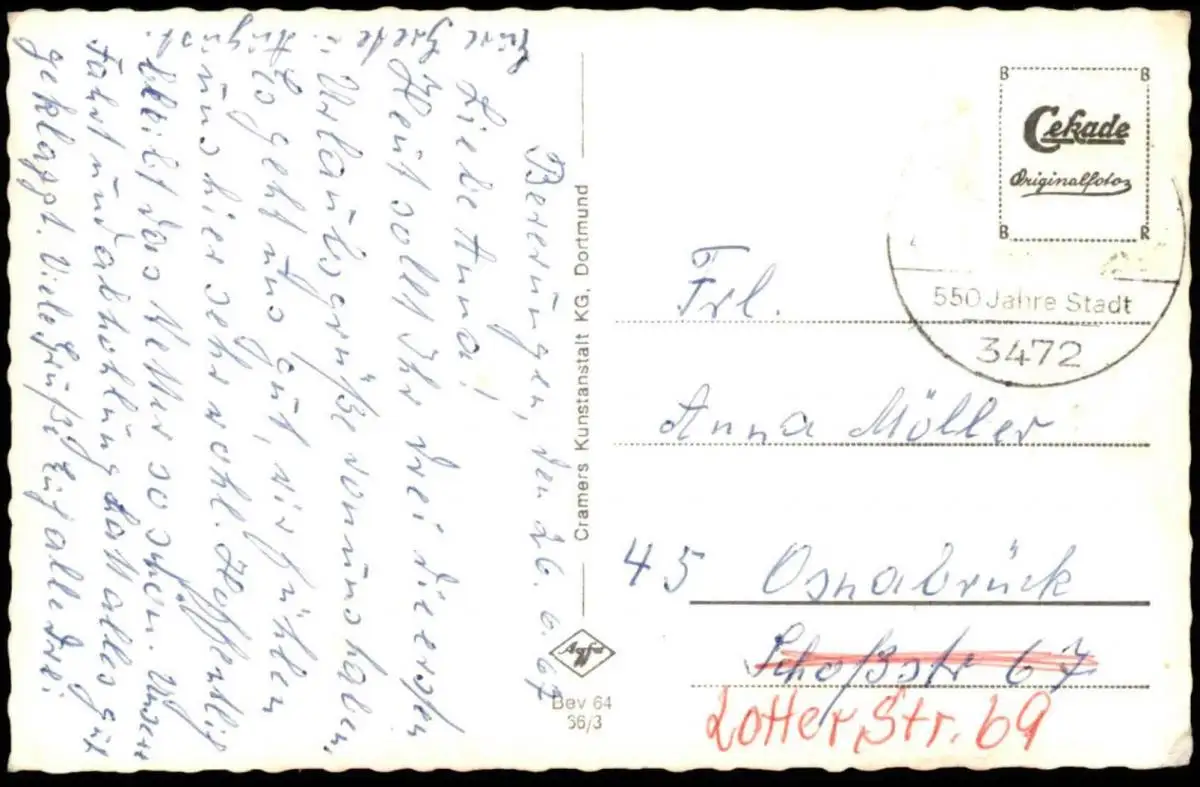 Beverungen, den 26.6.67
Liebe Anna!
Heut sollt Ihr drei die ersten
Urlaubsgrüße von uns haben.
Es geht uns gut, wir fühlen
uns hier sehr wohl. Hoffentlich
bleibt das Wetter so schön. Unsere
Fahrt und Abholung hatt alles gut
geklappt. Viele Grüße Euch alle drei
Eure Grete u. August.
Cramers Kunstanstalt KG, Dortmund
Agfa
Bev 64
56/3
B R
Cekade
Originalfoto
B R
550 Jahre Stadt
3472
Frl.
Anna Möller
45 Osnabrück
Schoßstr 67
Lotter Str. 69